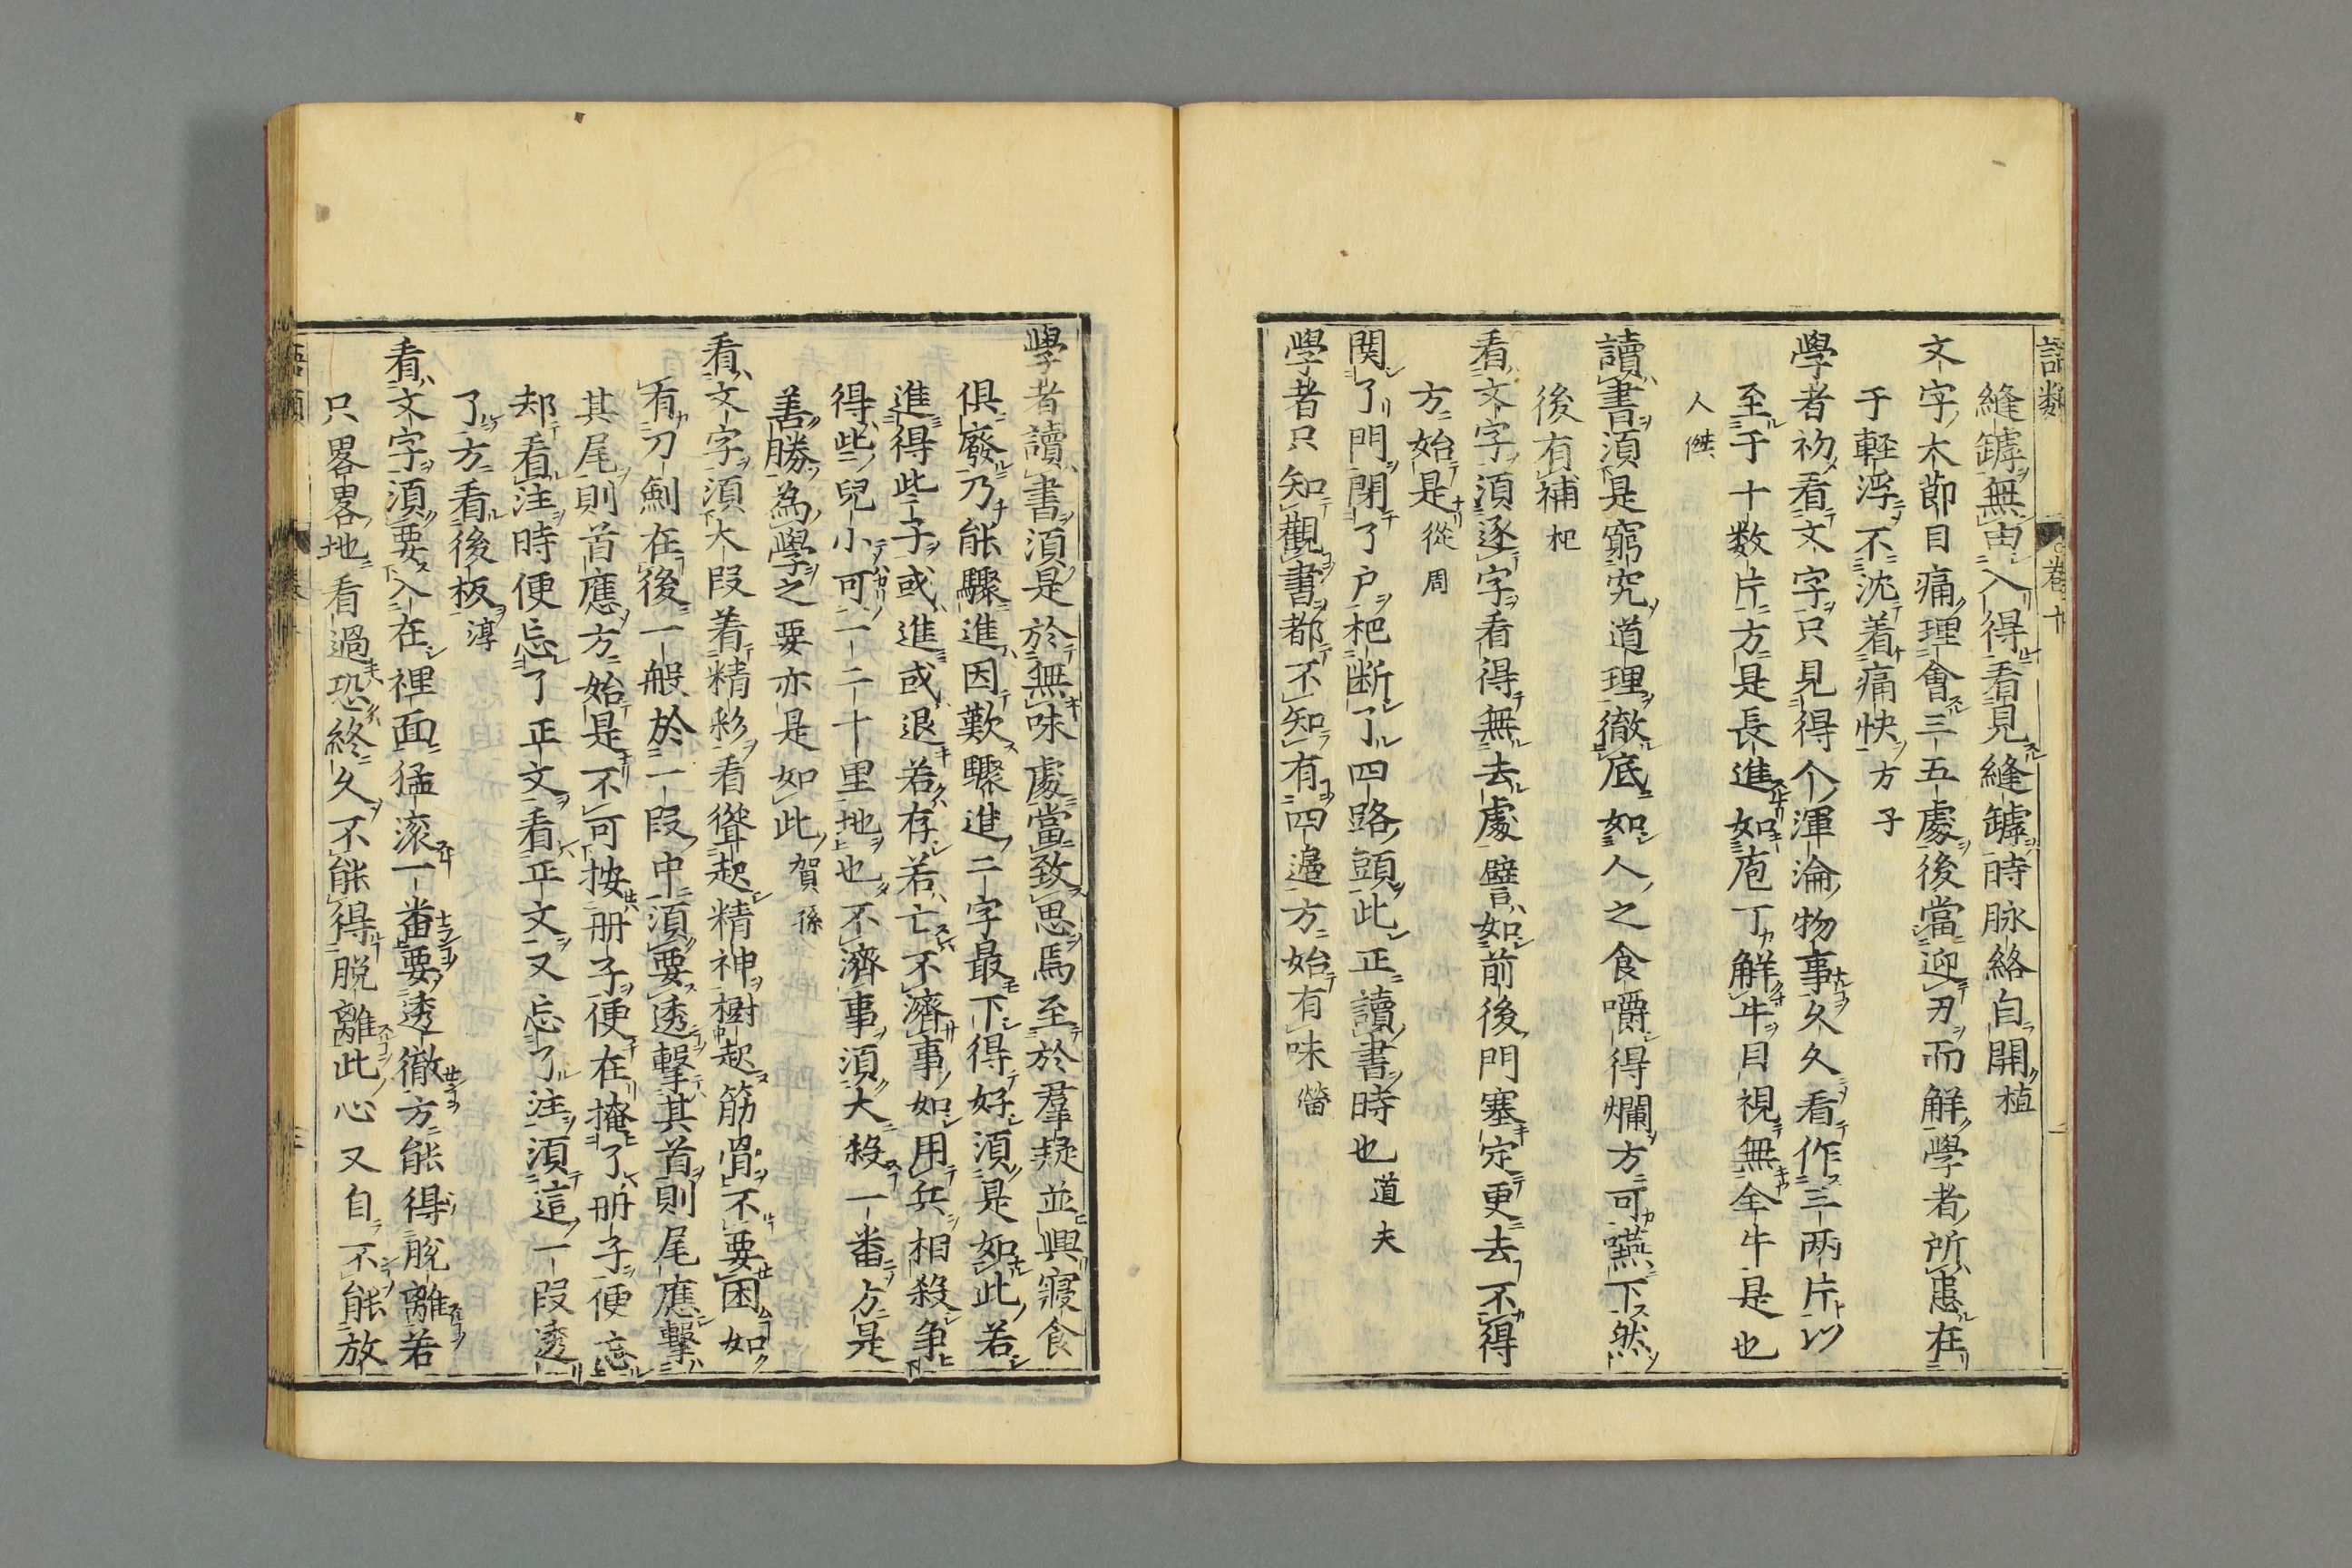 語類 卷十
縫罅無由入得看見縫罅時脉絡自開植
文字大節目痛理會三五處後當迎刃而解學者所患在
于軽浮不沈着痛快方子
學者初看文字只見得个渾淪物事久久看作三兩片以
至于十数片方是長進如庖丁解牛目視無全牛是也
人傑
讀書須是窮究道理徹底如人之食嚼得爛方可嚥下然
後有補杞
看文字須逐字看得無去處譬如前後門塞定更去不得
方始是從周
関了門閉了户杷断了四路頭此正讀書時也道夫
學者只知觀書都不知有四邉方始有味㽦
學者讀書須是於無味處當致思焉至於羣疑並興寢食
俱廢乃能驟進因歎驟進二字最下得好須是如此若
進得些子或進或退若存若亡不濟事如用兵相殺争
得些兒小可一二十里地也不濟事須大殺一番方是
善勝為學之要亦是如此賀孫
看文字須大叚着精彩看聳起精神樹起筋骨不要困如
有刀劍在後一般於一叚中須要透撃其首則尾應撃
其尾則首應方始是不可按册子便在掩了册子便忘
却看注時便忘了正文看正文又忘了注須這一叚透
了方看後板淳
看文字須要入在裡面猛滚一番要透徹方能得脫離若
只畧畧地看過恐終久不能得脫離此心又自不能放